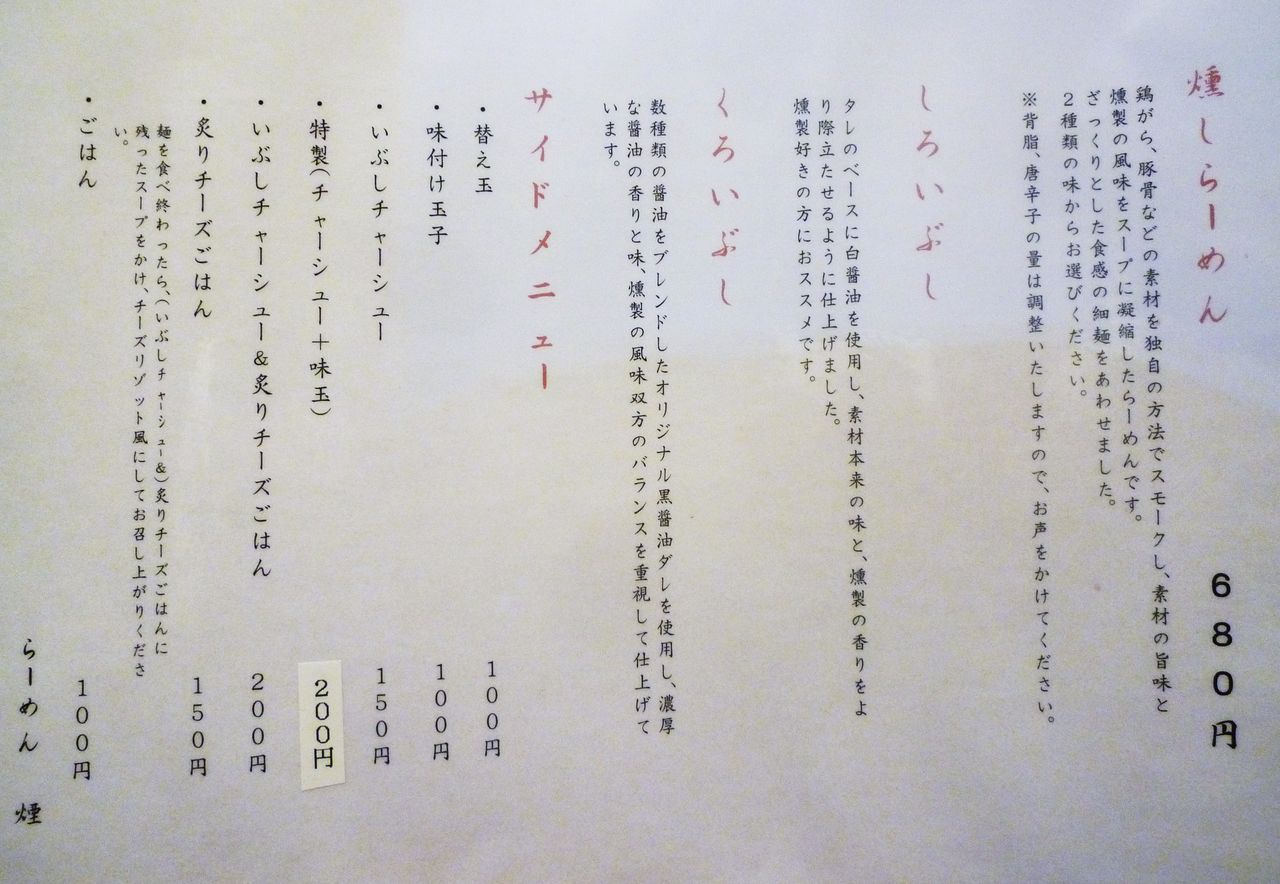 燻しらーめん 680円
鶏がら、豚骨などの素材を独自の方法でスモークし、素材の旨味と
燻製の風味をスープに凝縮したらーめんです。
ざっくりとした食感の細麺をあわせました。
2種類の味からお選びください。
※背脂、唐辛子の量は調整いたしますので、お声をかけてください。
しろいぶし
タレのベースに白醤油を使用し、素材本来の味と、燻製の香りをよ
り際立たせるように仕上げました。
燻製好きの方におススメです。
くろいぶし
数種類の醤油をブレンドしたオリジナル黒醤油ダレを使用し、濃厚
な醤油の香りと味、燻製の風味双方のバランスを重視して仕上げて
います。
サイドメニュー
・替え玉 100円
・味付け玉子 100円
・いぶしチャーシュー 150円
・特製(チャーシュー+味玉) 200円
・いぶしチャーシュー&炙りチーズごはん 200円
・炙りチーズごはん 150円
麺を食べ終わったら、(いぶしチャーシュー&)炙りチーズごはんに
残ったスープをかけ、チーズリゾット風にしてお召し上がりくださ
い。
・ごはん 100円
らーめん 煙